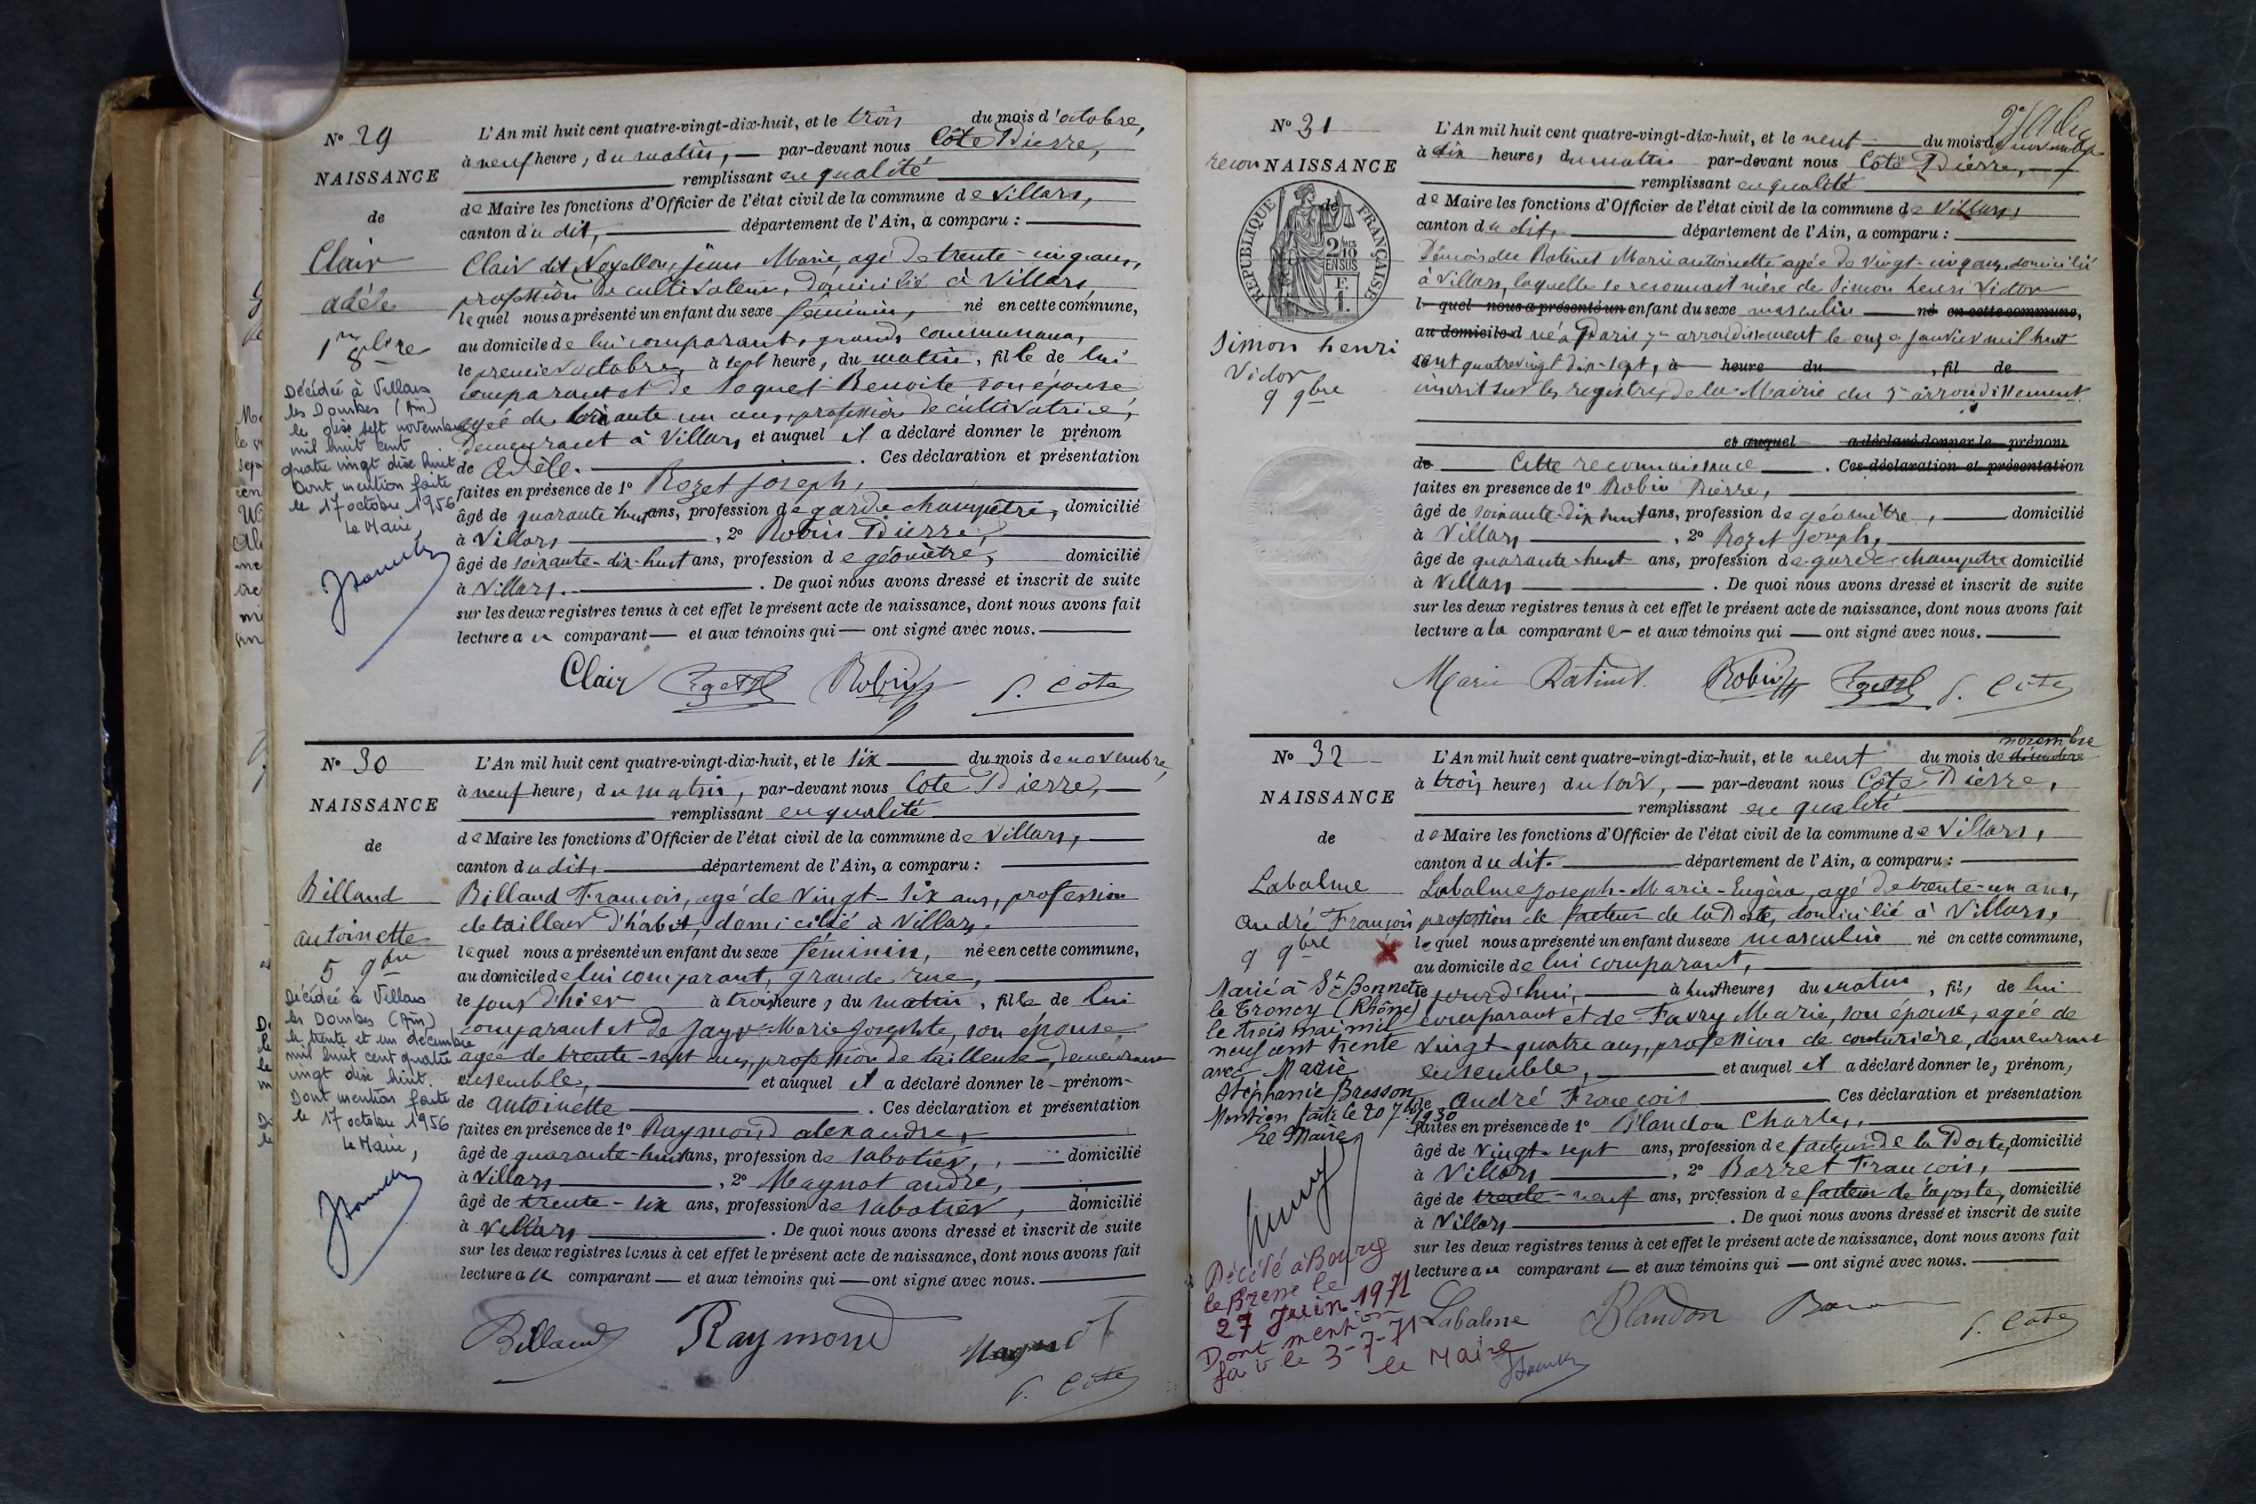 N° 29
NAISSANCE
de
Clair
adèle
1er 8bre
Décédée à Villars
les Dombes (Ain)
le dix sept novembre
mil huit cent
quatre vingt dix huit
Dont mention faite
le 17 octobre 1956
Le Maire,
L'An mil huit cent quatre-vingt-dix-huit, et le trois du mois d'octobre,
à neuf heures, du matin, par-devant nous Côte Pierre,
remplissant en qualité
de Maire les fonctions d'Officier de l'état civil de la commune de Villars,
canton du dit, département de l'Ain, a comparu :
Clair dit Noyellon, Jean Marie, agé de trente-cinq ans,
profession de cultivateur, domicilié à Villars,
lequel nous a présenté un enfant du sexe féminin, né en cette commune,
au domicile de lui comparant, grands communaux,
le premier octobre, à sept heures, du matin, fille de lui
comparant et de Benoite son épouse
agée de ans, profession de cultivatrice,
demeurant à Villars, et auquel il a déclaré donner le prénom
de Adèle. Ces déclaration et présentation
faites en présence de 1° Rozet Joseph,
âgé de quarante huit ans, profession de garde champêtre, domicilié
à Villars, 2° Robin Pierre,
âgé de soixante-dix-huit ans, profession de géomètre, domicilié
à Villars. De quoi nous avons dressé et inscrit de suite
sur les deux registres tenus à cet effet le présent acte de naissance, dont nous avons fait
lecture au comparant et aux témoins qui ont signé avec nous.
Clair Robin P. Côte
N° 30
NAISSANCE
de
Billaud
antoinette
5 9bre
Décédée à Villars
les Dombes (Ain)
le trente et un décembre
mil huit cent quatre
vingt dix huit.
Dont mention faite
le 17 octobre 1956
Le Maire,
L'An mil huit cent quatre-vingt-dix-huit, et le six du mois de novembre,
à neuf heures, du matin, par-devant nous Côte Pierre,
remplissant en qualité
de Maire les fonctions d'Officier de l'état civil de la commune de Villars,
canton du dit, département de l'Ain, a comparu :
Billaud François, agé de vingt-six ans, profession
de tailleur d'habit, domicilié à Villars,
lequel nous a présenté un enfant du sexe féminin, née en cette commune,
au domicile de lui comparant, grande rue,
le jour d'hier à trois heures du matin, fille de lui
comparant et de Jayr Marie Josephte, son épouse
agée de trente-sept ans, profession de tailleuse, demeurant
ensemble, et auquel il a déclaré donner le prénom
de antoinette. Ces déclaration et présentation
faites en présence de 1° Raymond alexandre,
âgé de quarante-huit ans, profession de sabotier, domicilié
à Villars, 2° Maynot andré,
âgé de trente-six ans, profession de sabotier, domicilié
à Villars. De quoi nous avons dressé et inscrit de suite
sur les deux registres tenus à cet effet le présent acte de naissance, dont nous avons fait
lecture au comparant et aux témoins qui ont signé avec nous.
Billaud Raymond Maynot
P. Côte
N° 31
recon NAISSANCE
de
RÉPUBLIQUE FRANÇAISE
2/10 EN SUS
F. 1.
Simon henri
Victor
9 9bre
L'An mil huit cent quatre-vingt-dix-huit, et le neuf du mois de novembre
à dix heures du matin par-devant nous Côte Pierre,
remplissant en qualité
de Maire les fonctions d'Officier de l'état civil de la commune de Villars,
canton du dit, département de l'Ain, a comparu :
Demoiselle Ratinet Marie antoinette agée de vingt-cinq ans, domicilié
à Villars, laquelle se reconnait mère de Simon henri Victor
lequel nous a présenté un enfant du sexe masculin né en cette commune,
au domicile d né à Paris 7e arrondissement le onze janvier mil huit
cent quatre vingt dix-sept, à heure du, fil de
inscrit sur les registres de la Mairie du arrondissement.
et auquel a déclaré donner le prénom
de Cette reconnaissance. Ces déclaration et présentation
faites en présence de 1° Robin Pierre,
âgé de soixante-dix huit ans, profession de géomètre, domicilié
à Villars, 2° Rozet Joseph,
âgé de quarante-huit ans, profession de garde-champetre domicilié
à Villars. De quoi nous avons dressé et inscrit de suite
sur les deux registres tenus à cet effet le présent acte de naissance, dont nous avons fait
lecture a la comparante et aux témoins qui ont signé avec nous.
Marie Ratinet. Robin P. Côte
N° 32
NAISSANCE
de
Labalme
andré François
9 9bre
Marié à St Bonnet
le Troncy (Rhône)
le trois mai mil
neuf cent trente
avec Marie
Stéphanie Bresson
Mention faite le 20 7bre 1930
Le Maire
Décédé à Bourg
en Bresse le
27 Juin 1971
Dont mention
faite le 3-7-71
le Maire
novembre
L'An mil huit cent quatre-vingt-dix-huit, et le neuf du mois de décembre
à trois heures du soir, par-devant nous Côte Pierre,
remplissant en qualité
de Maire les fonctions d'Officier de l'état civil de la commune de Villars,
canton du dit. département de l'Ain, a comparu :
Labalme Joseph-Marie-Eugène, agé de trente-un ans,
profession de facteur de la Poste, domicilié à Villars,
lequel nous a présenté un enfant du sexe masculin né en cette commune,
au domicile de lui comparant,
le jourd'hui, à huit heures du matin, fils de lui
comparant et de Favry Marie, son épouse, agée de
vingt-quatre ans, profession de couturière, demeurant
ensemble, et auquel il a déclaré donner le, prénom,
de andré François Ces déclaration et présentation
faites en présence de 1° Blandon Charles,
âgé de vingt-sept ans, profession de facteur de la Poste, domicilié
à Villars, 2° Barret François,
âgé de trente-neuf ans, profession de facteur de la poste, domicilié
à Villars. De quoi nous avons dressé et inscrit de suite
sur les deux registres tenus à cet effet le présent acte de naissance, dont nous avons fait
lecture au comparant et aux témoins qui ont signé avec nous.
Labalme Blandon
P. Côte